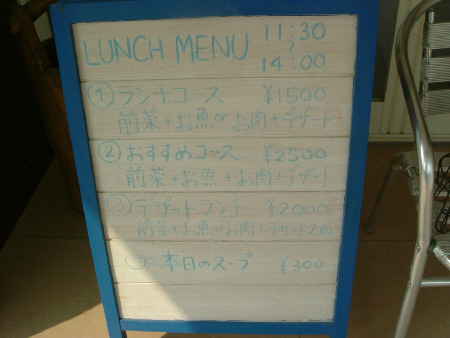 LUNCH MENU 11:30
~
14:00
① ランチコース ¥1500
前菜+お魚orお肉+デザート
② おすすめコース ¥2500
前菜+お魚+お肉+デザート
③ デザートランチ ¥2000
前菜+お魚orお肉+デザート2め
本日のスープ ¥300